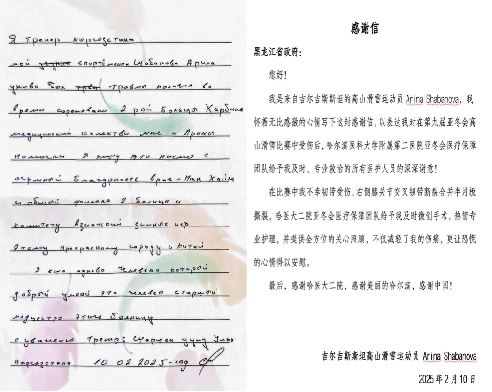 Я Тренер Кыргызстана
мой спортсменка Шабанова Арина
травма колена во
время соревнования 2 рой больница Харбина
медицинский качестве мне и Арины
помогли Я пишу это письмо с
огромной благодарность врач
и 2 больнице и
комитету Азиатский зимние игр
Этому прекрасному городу и Китай
Я еще одного Человека которой
доброй это человек старшой
медсестра этого больницы
с уважением Тренер уулу Улан
10.02.2025-год
感谢信
黑龙江省政府：
您好！
我是来自吉尔吉斯斯坦的高山滑雪运动员 Arina Shabanova，我
怀着无比感激的心情写下这封感谢信，以表达我对在第九届亚冬会高
山滑雪比赛中受伤后，哈尔滨医科大学附属第二医院亚冬会医疗保障
团队给予我及时、专业救治的所有医护人员的深深谢意！
在比赛中我不幸韧带受伤，右侧膝关节交叉韧带断裂合并半月板
撕裂，哈医大二院亚冬会医疗保障团队给予我及时微创手术，热情专
业护理，并提供全方位的关心照顾，不仅减轻了我的伤痛，更让恐慌
的心情得以安慰。
最后，感谢哈医大二院，感谢美丽的哈尔滨，感谢中国！
吉尔吉斯斯坦高山滑雪运动员 Arina Shabanova
2025 年 2 月 10 日